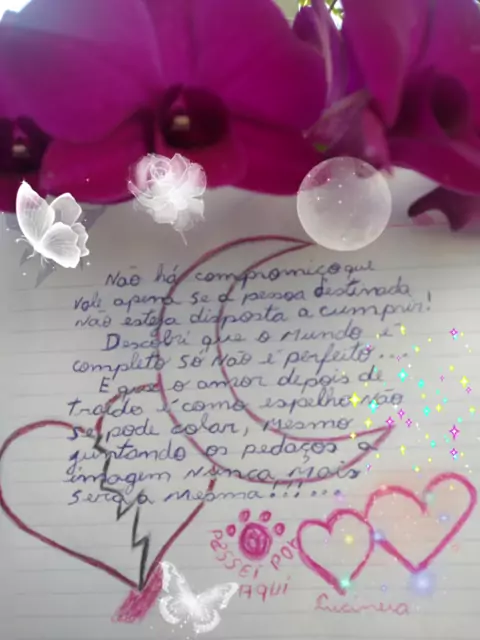 Não há compromiço que
vale apena se a pessoa destinada
não esteja disposta a cumprir!
Descobri que o mundo é
completo só não é perfeito...
E que o amor depois de
traído é como espelho não
se pode colar, mesmo
juntando os pedaços a
imagem nunca mais
será a mesma!!!...
PASSEI POR
AQUI
Lucineia